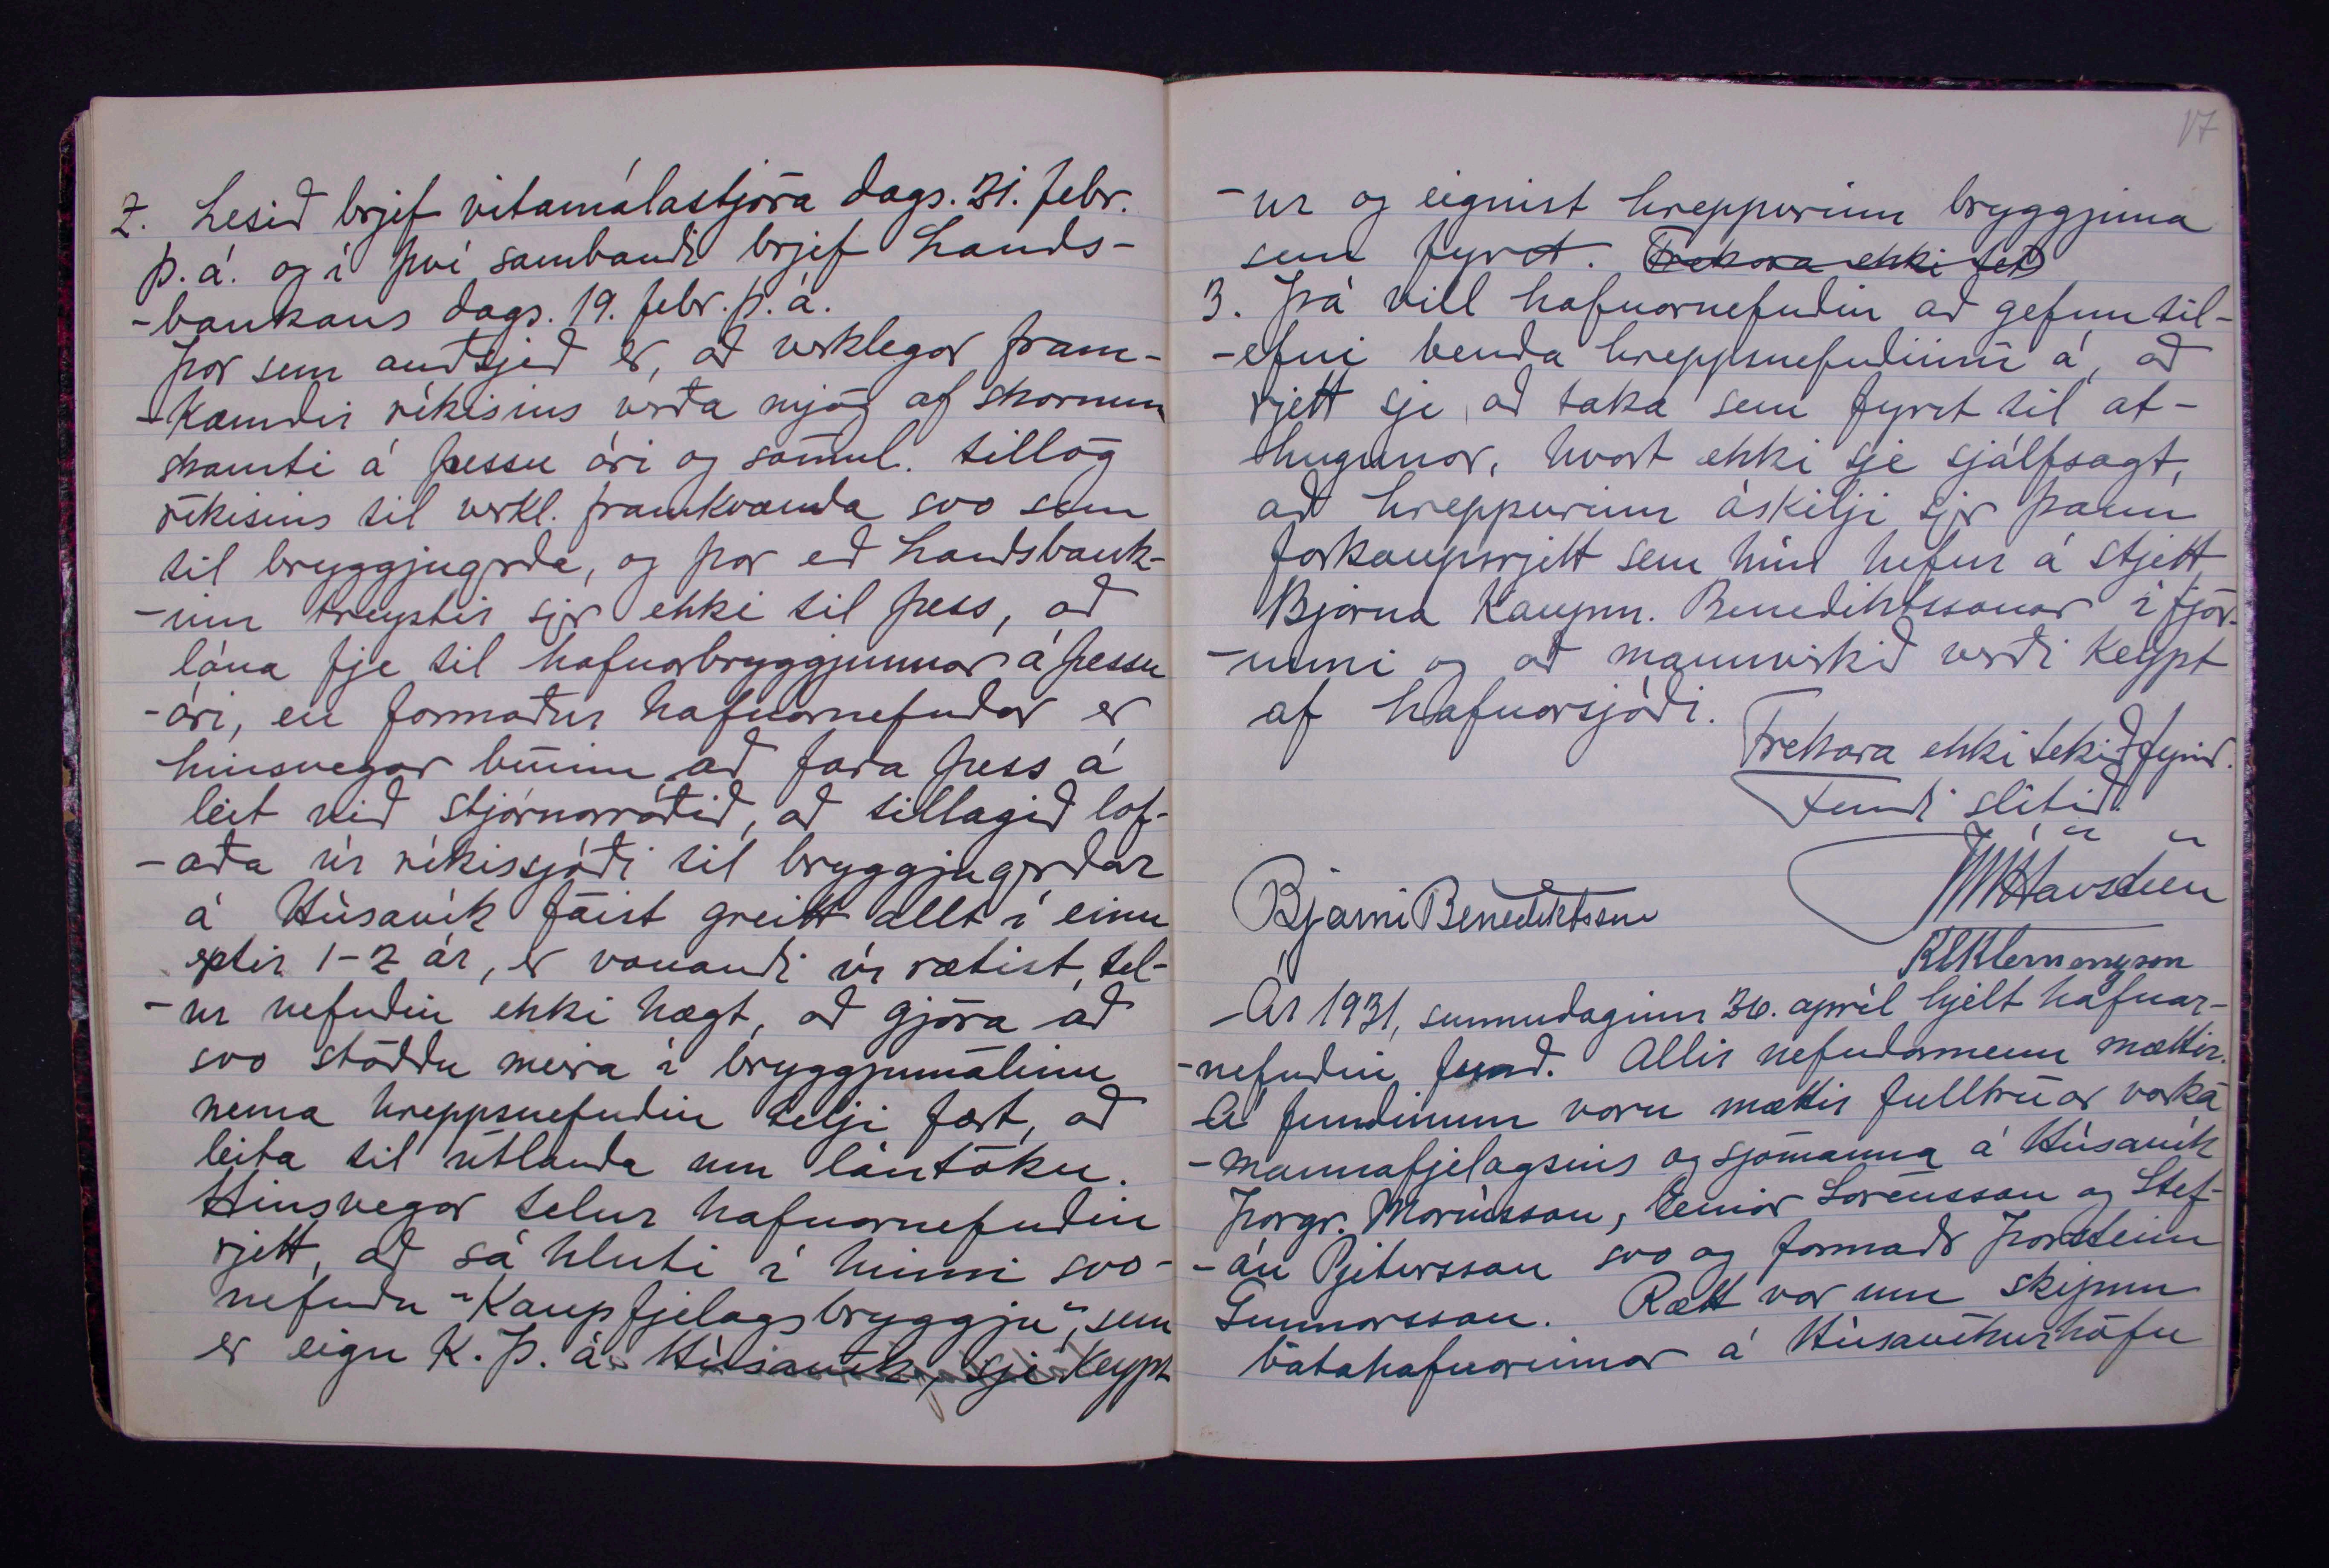 2. Lesið brjef vitamálastjóra dags. 21. febr.
þ.á. og í því sambandi brjef Lands-
-bankans dags. 19. febr. þ.á.
Þar sem auðsjeð er, að verklegar fram-
-kæmdir ríkisins verða mjög af skornum
skamti á þessu ári og sömul. tillög
ríkisins til verkl. framkvæmda svo sem
til bryggjugerða, og þar eð Landsbank-
-inn treystir sjer ekki til þess, að
lána fje til hafnarbryggjunnar á þessu
-ári, en formaður hafnarnefndar er
hinsvegar búinn að fara þess á
leit við stjórnarráðið, að tillagið lof-
-aða úr ríkissjóði til bryggjugerðar
á Húsavík fáist greitt allt í einu
eptir 1-2 ár, er vonandi úr rætist, tel-
-ur nefndin ekki hægt, að gjöra að
svo stöddu meira í bryggjumálinu
nema hreppsnefndin telji fært, að
leita til útlanda um lántöku.
Hinsvegar telur hafnarnefndin
rjett, að sá hluti í hinni svo-
nefndu "Kaupfjelagsbryggju", sem
er eign K.Þ. á Húsavík, sje keypt
17
-ur og eignist hreppurinn bryggjuna
sem fyrst. Frekara ekki tekið
3. Þá vill hafnarnefndin að gefnu til-
-efni benda hreppsnefndinni á, að
rjett sje, að taka sem fyrst til at-
hugunar, hvort ekki sje sjálfsagt,
að hreppurinn áskilji sjer þann
forkaupsrjett sem hún hefur á stjett
Bjarna kaupm. Benediktssonar í fjör-
-unni og að mannvirkið verði keypt
af hafnarsjóði.
Frekara ekki tekið fyrir.
Fundi slitið.
Bjarni Benediktsson
Havsteen
Kl Klemensson
Ár 1931, sunnudaginn 26. apríl hjelt hafnar-
-nefndin fund. Allir nefndarmenn mættir.
Á fundinum voru mættir fulltrúar verka
-mannafjelagsins og sjómanna á Húsavík
Þorgr. Maríusson, Einar Sörensson og Stef-
-án Pjetursson svo og formaðr Þorsteinn
Gunnarsson. Rætt var um skipun
bátahafnarinnar á Húsavíkurhöfn